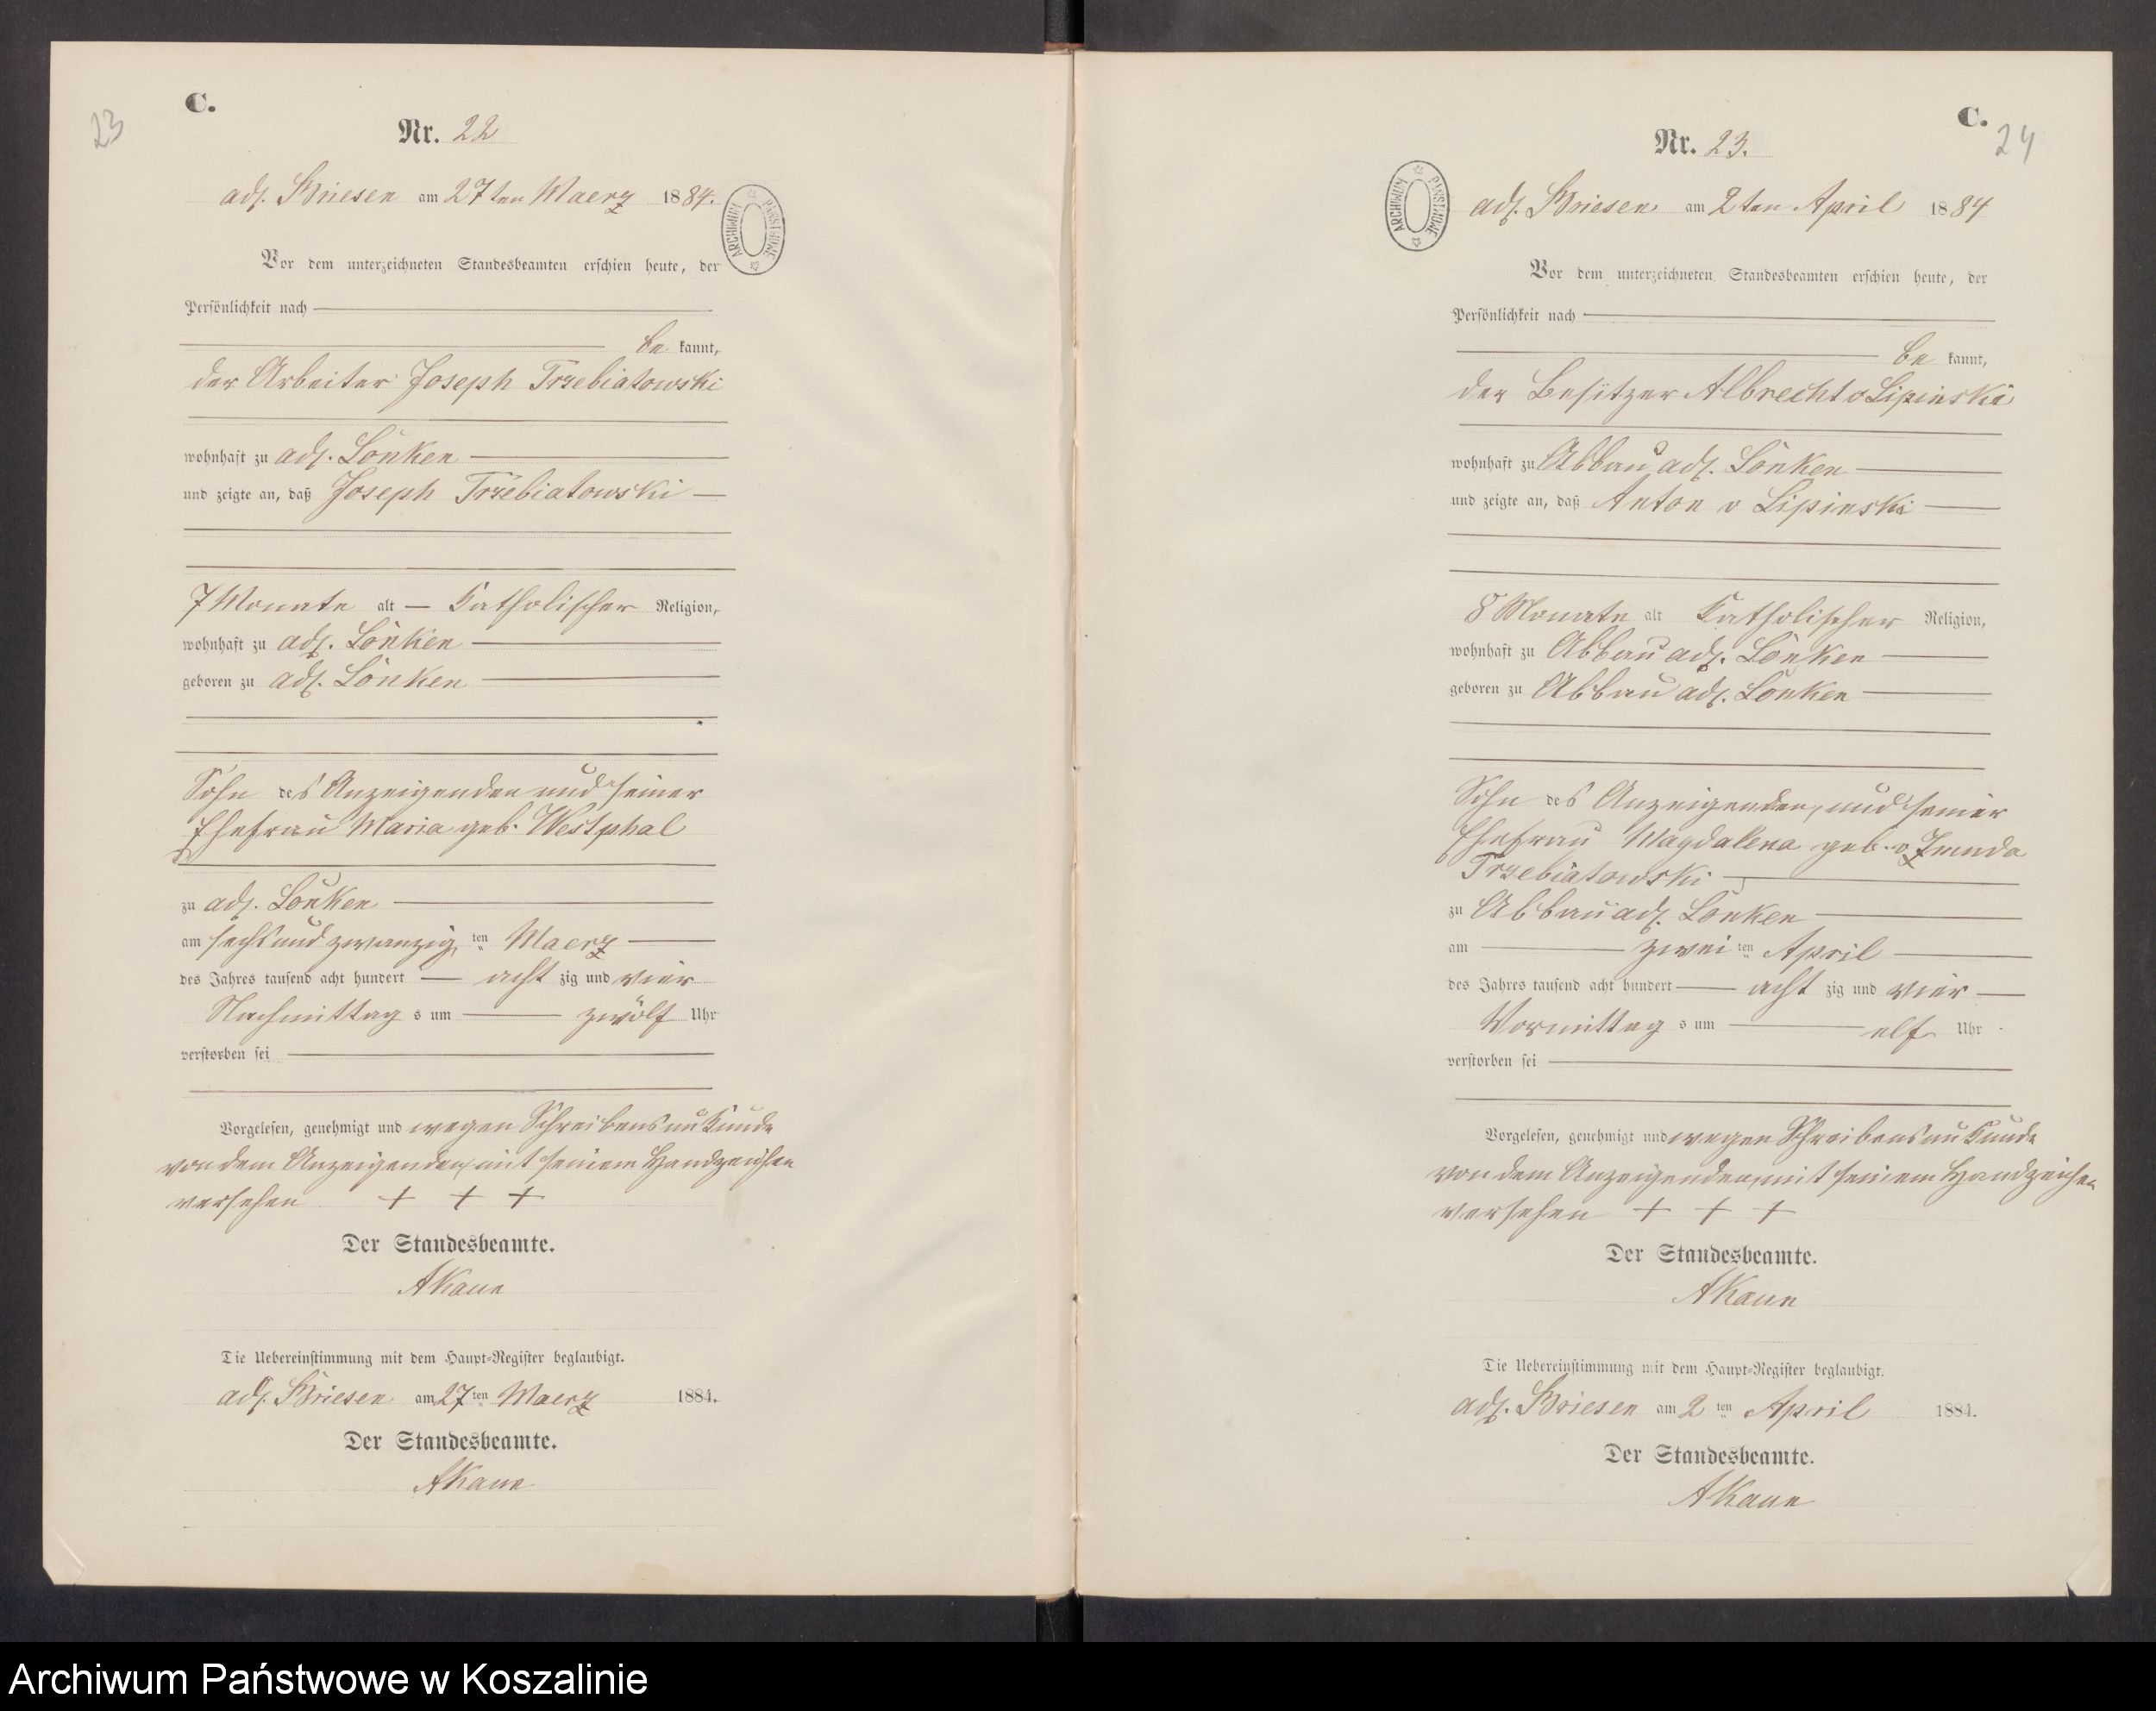 23
C.
Nr. 22
adl. Briesen am 27ten Maerz 1884.
ARCHIWUM PAŃSTWOWE
Vor dem unterzeichneten Standesbeamten erschien heute, der
Persönlichkeit nach
be kannt,
der Arbeiter Joseph Trzebiatowski
wohnhaft zu adl. Lonken
und zeigte an, daß Joseph Trzebiatowski
7 Monate alt Katholischer Religion,
wohnhaft zu adl. Lonken
geboren zu adl. Lonken
Sohn des Anzeigenden und seiner
Ehefrau Maria geb. Westphal
zu adl. Lonken
am sechs und zwanzig ten Maerz
des Jahres tausend acht hundert acht zig und vier
Nachmittag s um zwölf Uhr
verstorben sei
Vorgelesen, genehmigt und wegen Schreibens unkunde
von dem Anzeigenden mit seinem Handzeichen
versehen + + +
Der Standesbeamte.
AKaun
Die Uebereinstimmung mit dem Haupt-Register beglaubigt.
adl. Briesen am 27ten Maerz 1884.
Der Standesbeamte.
AKaun
C.
24
Nr. 23.
ARCHIWUM PAŃSTWOWE
adl. Briesen am 2ten April 1884
Vor dem unterzeichneten Standesbeamten erschien heute, der
Persönlichkeit nach
be kannt,
der Besitzer Albrecht v Lipinski
wohnhaft zu Abbau adl. Lonken
und zeigte an, daß Anton v Lipinski
8 Monate alt Katholischer Religion,
wohnhaft zu Abbau adl. Lonken
geboren zu Abbau adl. Lonken
Sohn des Anzeigenden, und seiner
Ehefrau Magdalena geb. v Zmuda
Trzebiatowski
zu Abbau adl. Lonken
am zwei ten April
des Jahres tausend acht hundert acht zig und vier
Vormittag s um elf Uhr
verstorben sei
Vorgelesen, genehmigt und wegen Schreibens unkunde
von dem Anzeigenden, mit seinem Handzeichen
versehen + + +
Der Standesbeamte.
AKaun
Die Uebereinstimmung mit dem Haupt-Register beglaubigt.
adl. Briesen am 2 ten April 1884.
Der Standesbeamte.
AKaun
Archiwum Państwowe w Koszalinie